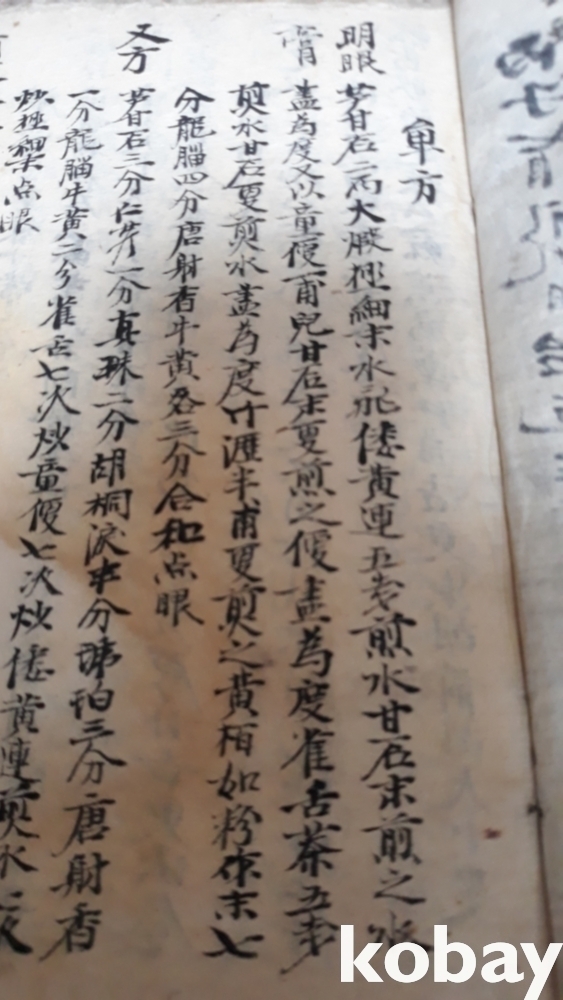 單方
明眼 芦甘石二兩大煅極細末水飛倭黃連五戔煎水甘石末煎之水
膏 盡為度又以童便一甫兒甘石末更煎之便盡為度雀舌茶五戔
煎水甘石更煎水盡為度竹瀝半甫更煎之黃栢如粉作末七
分龍腦四分唐射香牛黃各三分合和点眼
又方 芦甘石三分 一分真珠二分胡桐淚半分 珀三分唐射香
一分龍腦牛黃二分雀舌七次炒童便七次炒倭黃連煎水
炒極細末点眼
kobay